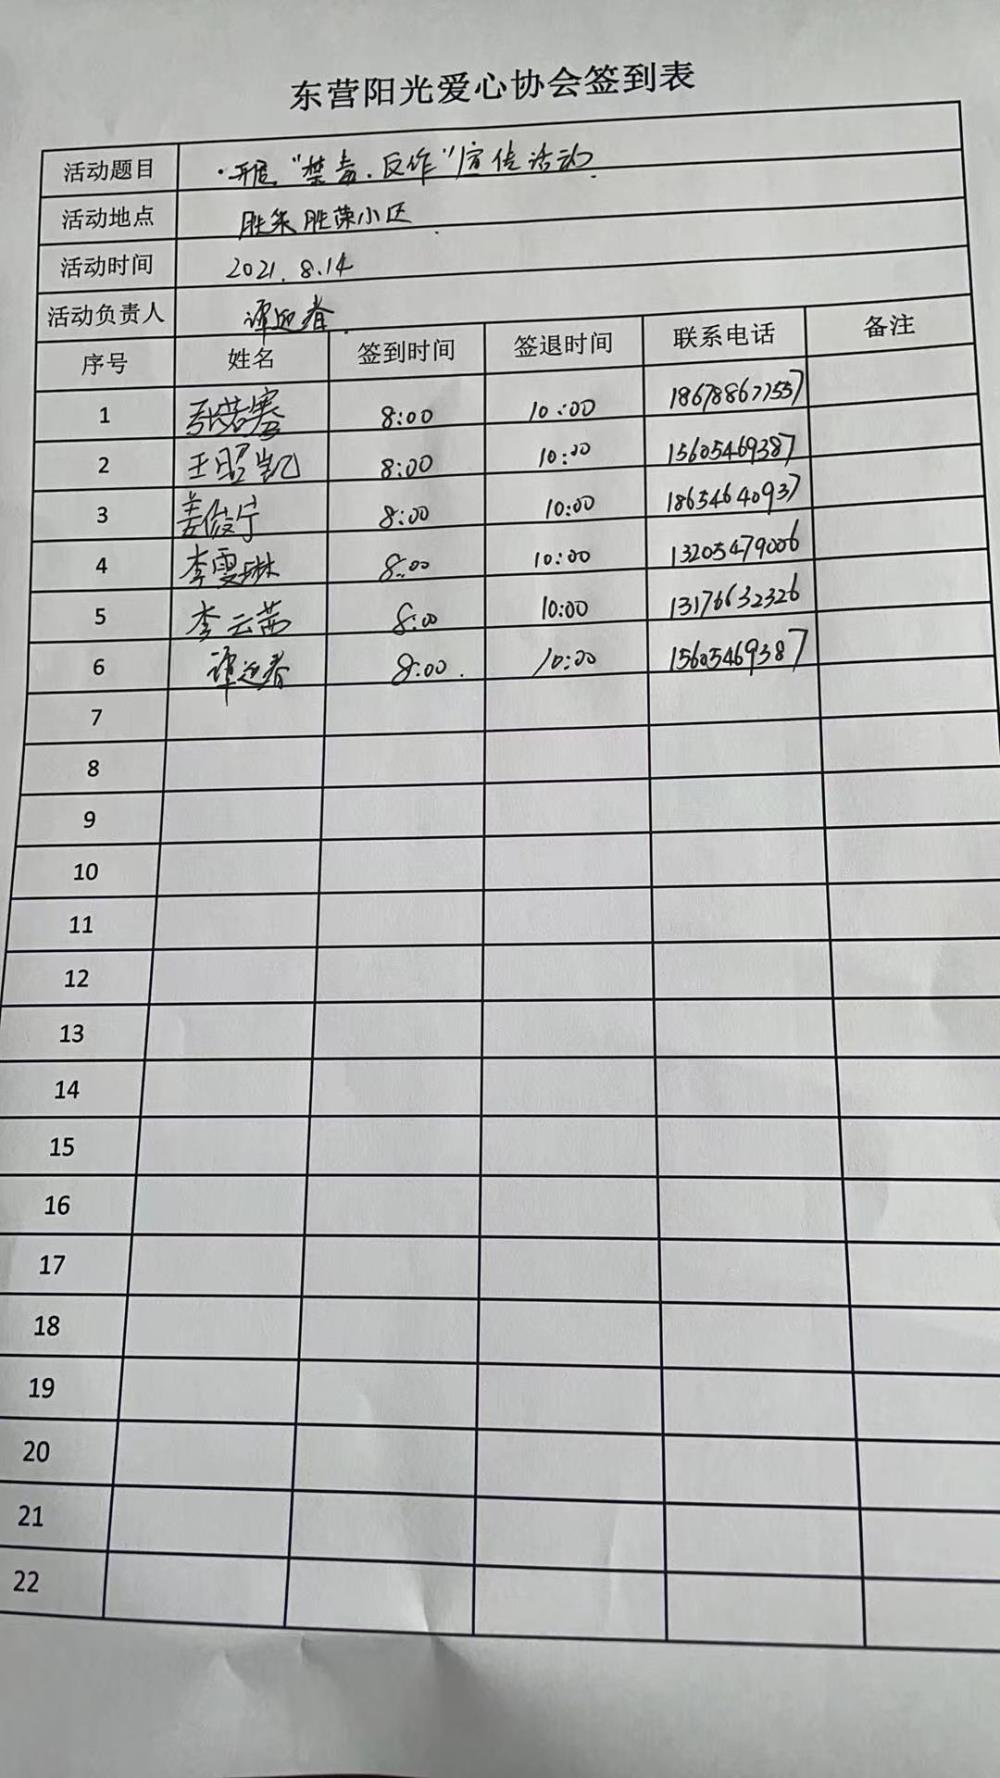 东营阳光爱心协会签到表
活动题目 开展"禁毒、反诈"宣传活动.
活动地点 胜东胜荣小区.
活动时间 2021.8.14
活动负责人 谭迎春.
序号 姓名 签到时间 签退时间 联系电话 备注
1 张若骞 8:00 10:00
2 王昭凯 8:00 10:00 15605469387
3 姜俊宁 8:00 10:00 18654640937
4 李雯琳 8:00 10:00 13205479006
5 李云茜 8:00 10:00 13176632326
6 谭迎春 8:00. 10:00 15605469387
7
8
9
10
11
12
13
14
15
16
17
18
19
20
21
22